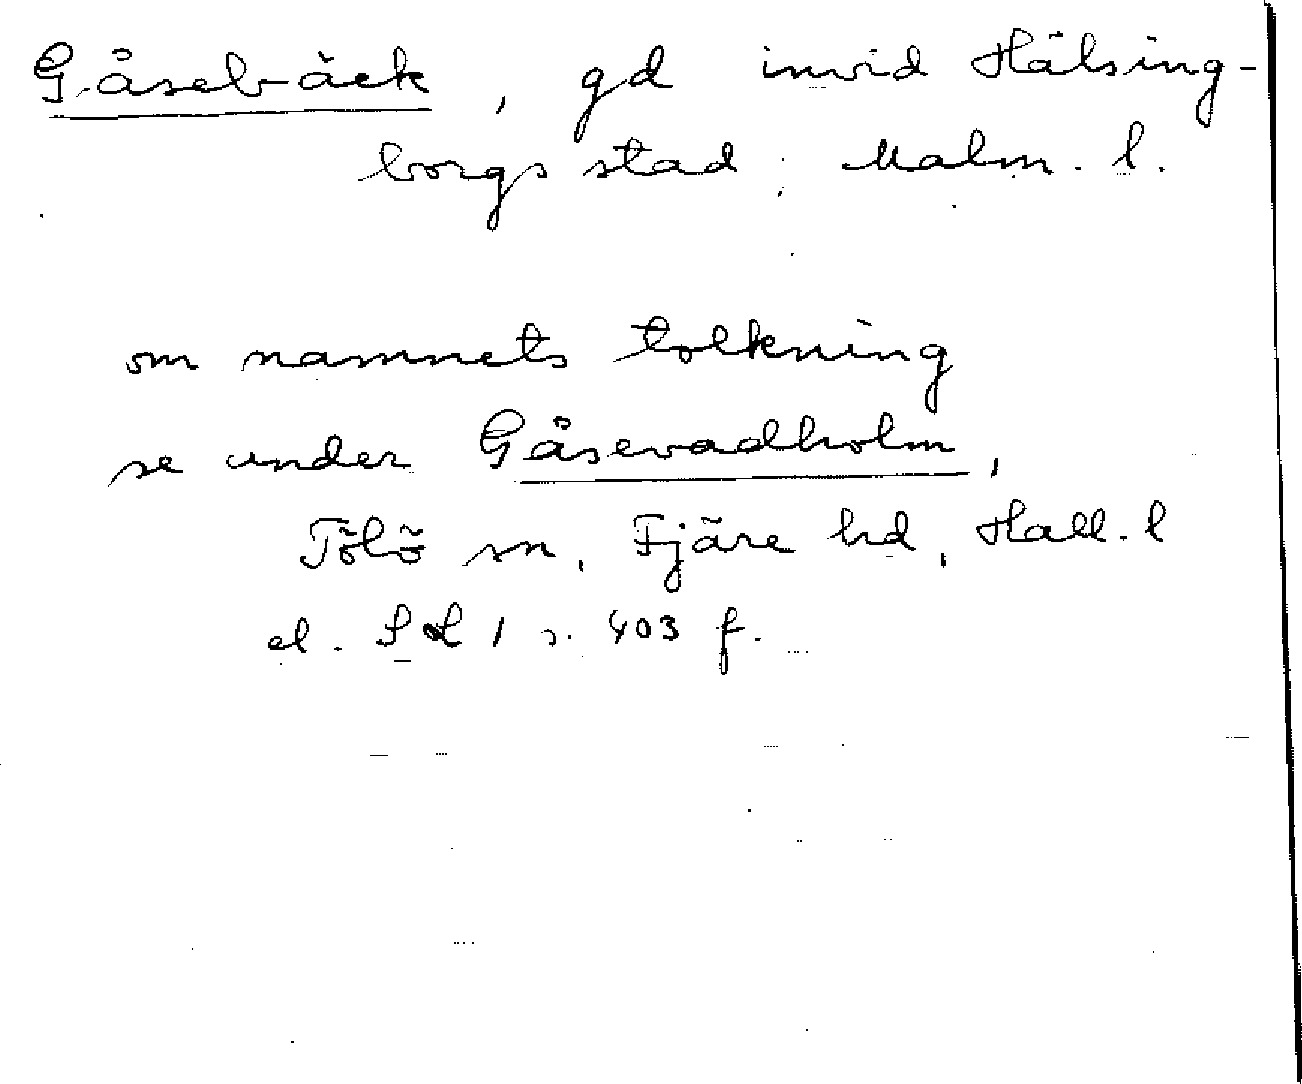 Gåsebäck, gd invid Hälsing-
borgs stad; Malm. l.
om namnets tolkning
se under Gåsevadholm,
Tölö sn, Fjäre hd, Hall. l
el. 1 s. 403 f.